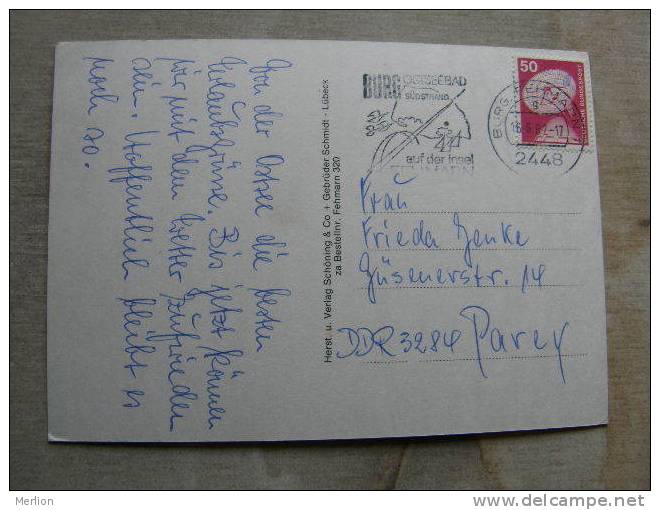 Von der Ostsee die besten
Urlaubsgrüsse. Bis jetzt können
wir mit dem Wetter zufrieden
sein. Hoffentlich bleibt es
noch so.
Herst. u. Verlag Schöning & Co + Gebrüder Schmidt - Lübeck
za Bestellnr. Fehmarn 320
BURG OSTSEEBAD
SÜDSTRAND
auf der Insel
FEHMARN
50
DEUTSCHE BUNDESPOST
BURG FEHMARN
2448
Frau
Frieda Genke
Güsenerstr. 14
DDR 3284 Parey
Merlion
www.delcampe.net